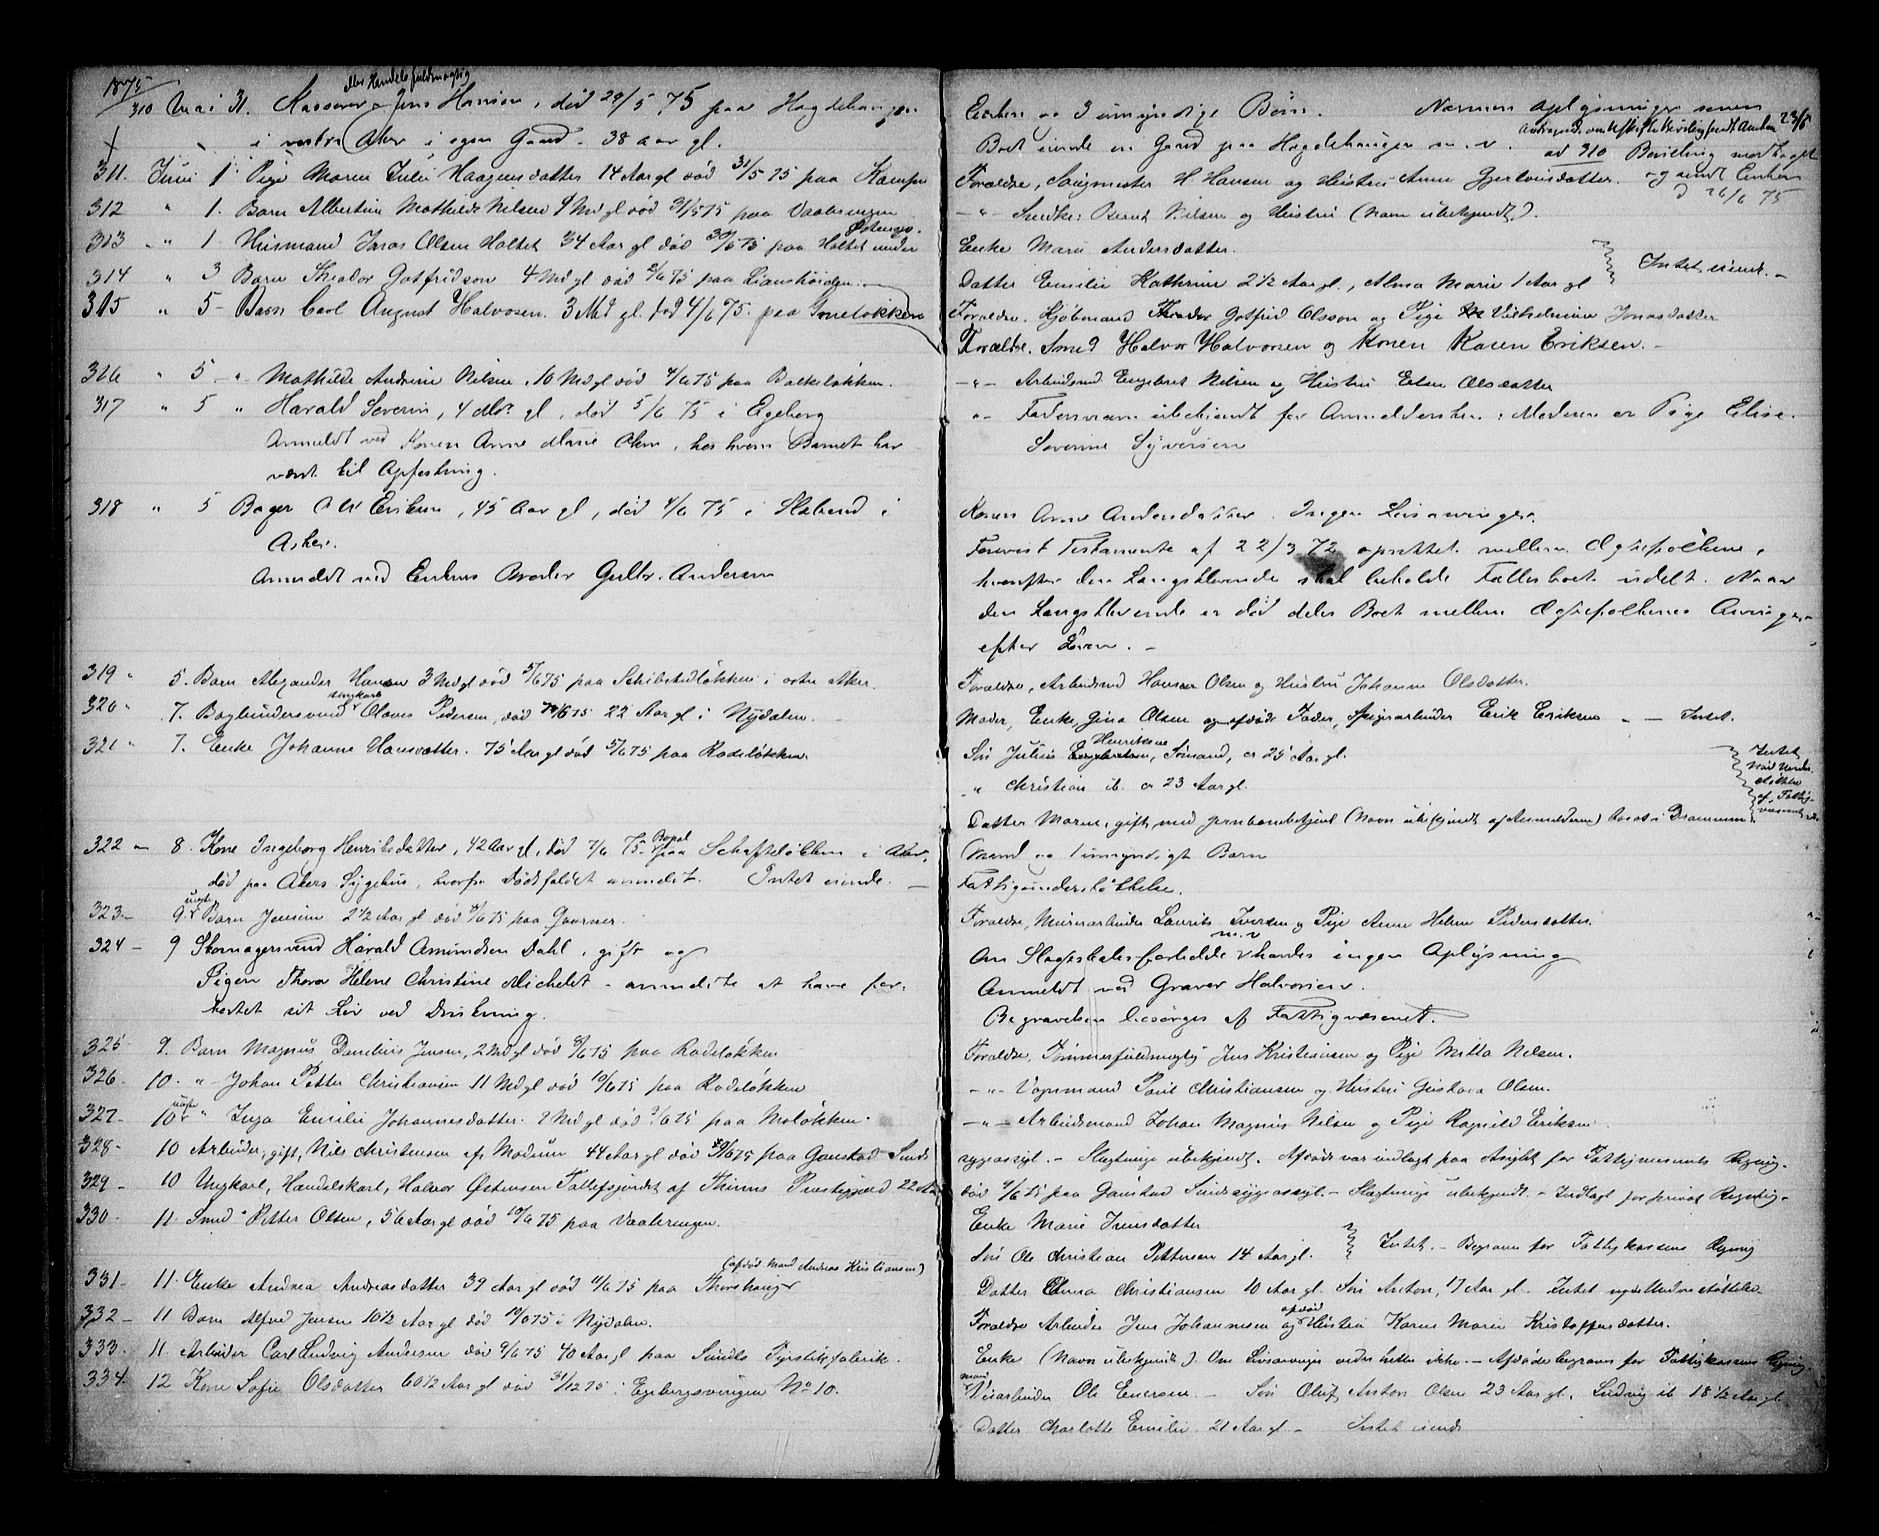 1875
eller Handelsfuldmægtig
310 Mai 31. Kasserer Jens Hansen, død 29/5 75 paa Hagdehaugen
i vestre Aker i egen Gaard. 38 aar gl.
311. Juni 1 Pige Maren Julie Haagensdatter 14 Aar gl død 31/5 75 paa Kampen
312 " 1. Barn Albertine Mathilde Nilsen 9 Md gl død 31/5 75 paa Vaalerengen
313 " 1 Husmand Jonas Olsen Holtet 34 Aar gl død 30/5 75 paa Holtet under Østensjø.
314 " 3 Barn Theodor Gotfridson 4 Md gl død 2/6 75 paa Lianshøiden
315 " 5 - Barn Carl August Halvorsen. 3 Md gl. død 4/6 75. paa Eneløkken
316 " 5 - " - Mathilde Andrine Nilsen. 10 Md gl død 4/6 75 paa Balkeløkken.
317 " 5 " Harald Severin, 4 Mdr. gl, død 5/6 75 i Egeberg
Anmeldt ved Konen Anne Marie Olsen, hos hvem Barnet har
været til Opfostring.
318 " 5 Bager Ole Eriksen, 45 Aar gl, død 4/6 75 i Slabend i
Asker.
Anmeldt ved Enkens Broder Gulbr. Andersen
319 " 5. Barn Alexander Hansen 3 Md gl død 5/6 75 paa Schibstedløkken i østre Aker.
320 " 7. Bogbindersvend ungkarl Olaves Pedersen, død 6 75 22 Aar gl i Nydalen.
321 " 7. Enke Johanne Hansdatter. 75 Aar gl død 5/6 75 paa Rodeløkken.
322 - 8. Kone Ingeborg Henriksdatter, 42 Aar gl, død 7/6 75. Bopæl paa Schafteløkken i Aker,
død paa Akers Sygehus, hvorfra Dødsfaldet anmeldt. Intet eiende.
323 - 9. uægte Barn Jensine 2 1/2 Aar gl død 8/6 75 paa Gaarner.
324 - 9 Skomagersvend Harald Amundsen Dahl, gift og
Pigen Thora Helene Christine Michelet - anmeldte at have for-
kortet sit Liv ved Drukning.
325 9. Barn Magnus Danelius Jensen, 2 Md gl død 8/6 75 paa Rodeløkken
326 - 10. " - Johan Petter Christiansen 11 Md gl død 10/6 75 paa Rodeløkken
327 - 10 uægte " Inga Emilie Johannesdatter. 2 Md gl død 9/6 75 paa Moløkken.
328 - 10 Arbeider, gift, Nils Christensen af Modum 44 Aar gl død 6 75 paa Gaustad Sinds
329 - 10 Ungkarl, Handelskarl, Halvor Østensen Tallefsjordet af Thinns Præstegjæld 22 Aar
330 - 11. Smed Petter Olsen, 56 Aar gl død 10/6 75 paa Vaalerengen.
(afdød Mand Andreas Kristiansen)
331 - 11. Enke Andrea Andreasdatter 39 Aar gl død 11/6 75 paa Thorshaug
332 - 11 Barn Alfred Jensen 10 1/2 Aar gl død 10/6 75 i Nydalen.
333. 11. Arbeider Carl Ludvig Andersen død 9/6 75 40 Aar gl paa Sundts Fyrstikfabrik.
334. 12 Kone Sofie Olsdatter 60 1/2 Aar gl død 31/12 75 i Egebergsveien No 10.
Enken og 3 umyndige Børn. Nærmere Oplysninger senere
Boet eiende en Gaard paa Hagdehaugen m.v. ad 310 Bevilling modtaget
og sendt Enken
d 26/6 75
Forældre, Sangmester H. Hansen og Hustru Anne Gjertrudsdatter.
- " - Snedker Bernt Nilsen og Hustru (Navn ubekjendt).
Enke Marie Andersdatter.
Datter Emilie Kathrine 2 1/2 Aar gl., Alma Marie 1 Aar gl Intet eiende. -
Forældre. Kjøbmand Theodor Gotfrid Olsson og Pige Vilhelmine Jonasdatter
Forældre. Smed Halvor Halvorsen og Konen Karen Eriksen. -
- " - Arbeidsmd Engebret Nilsen og Hustru Elen Olsdatter
" - Faderens navn ubekjendt for Anmeldersken; Moderen er Pige Elise
Severine Syversen
Konen Anne Andersdatter. Ingen Livsarvinger.
Forevist Testamente af 22/3 72 oprettet mellem Ægtefolkene,
hvorefter den Længstlevende skal beholde Fællesboet udelt. Naar
den Længstlevende er død deles Boet mellem Ægtefolkenes Arvinger
efter Loven. -
Forældre, Arbeidsmd Hansen Olsen og Hustru Johanne Olsdatter.
Moder, Enke, Gina Olsen og afdøde Fader, Spigerarbeider Erik Eriksen - - Intet.
Søn Julius Henriksen, Sømand, er 25 Aar gl.
" Christian ib. er 23 Aar gl.
Intet
af Fattig-
væsenet
Datter Maren, gift med Jernbanebetjent (Navn ubekjendt af Anmelderne) bosat i Drammen
Mand og 1 umyndigt Barn
Fattigunderstøttelse.
Forældre, Murerarbeider Laurits Iversen og Pige Anne Helene Pedersdatter.
Om Slægtskabsforholdde m.v haves ingen Oplysning
Anmeldt ved Graver Halvorsen.
Begravelsen besørges af Fattigvæsenet.
Forældre, Tømmerfuldmægtig Jens Kristiansen og Pige Mitta Nilsen.
- " - Vognmand Paul Christiansen og Hustru Gustava Olsen.
- " - Arbeidsmand Johan Magnus Nilsen og Pige Ragnild Eriksen
sygeasyl. - Slægtninge ubekjendt. Afdøde var indlagt paa Asylet for Fattigvæsenets Regning.
død 9/6 75 paa Gaustad Sindssygeasyl. - Slægtninge ubekjendt. - Indlagt for privat Regning -
Enke Marie Jensdatter
Søn Ole Christian Pettersen 14 Aar gl. Intet. - Begraves for Fattigkassens Regning
Datter Emma Christiansen 10 Aar gl. Søn Anton, 17 Aar gl. Intet
Forældre Arbeider Jens Johannesen og afdød Hustru Karen Marie Kristoffersdatter.
Enke (Navn ubekjendt.) Om Livsarvinger vides heller ikke. - Afdøde begraves for Fattigkassens Regning.
Mand Veiarbeider Ole Enersen. - Søn Oluf Anton Olsen 23 Aar gl. Ludvig ib 18 1/2 Aar gl
Datter Charlotte Emilie. 21 Aar gl - Intet eiende